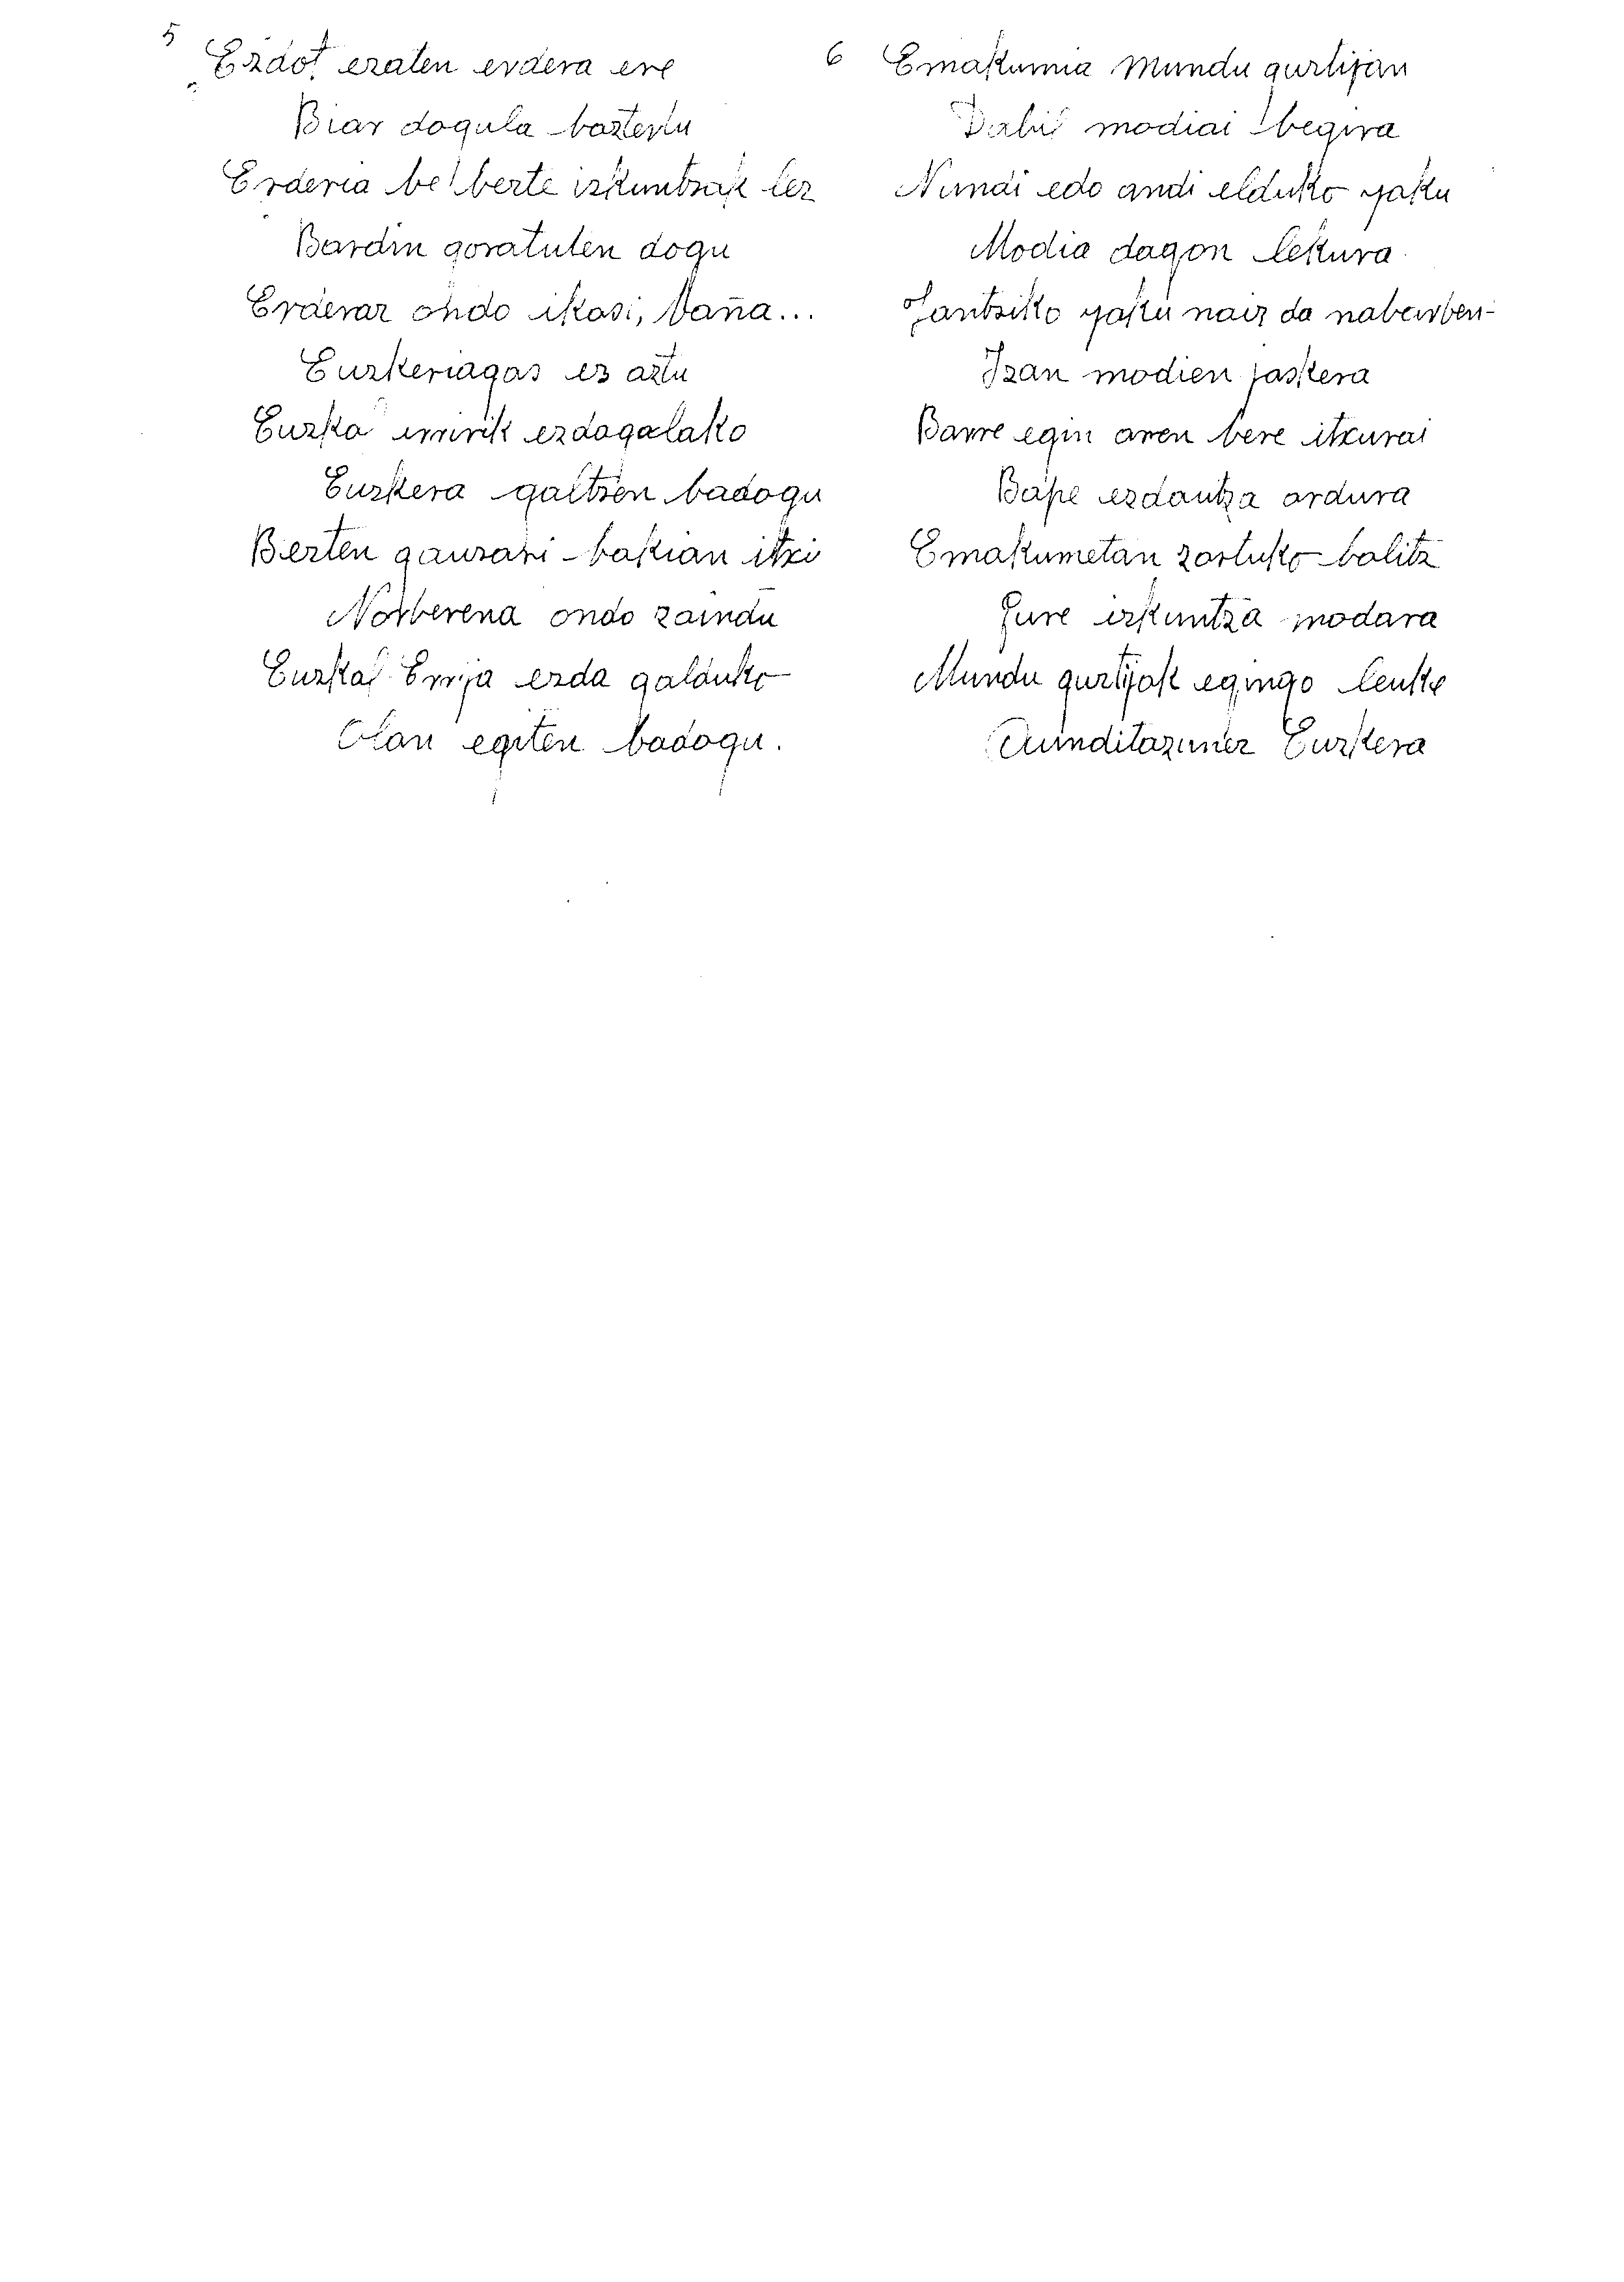 5
Ezdot eraten erdera ere
Biar dogula baztertu
Erderia be berte izkuntzak lez
Bardin goratuten dogu
Erderaz ondo ikasi, baña...
Euzkeriagas ez aztu
Euzko erririk ezdagalako
Euzkera galtzen badogu
Berten gauzari bakian itxi
Norberena ondo zaindu
Euzkal Errija ezda galduko
Olan egiten badogu.
6
Emakumia mundu gurtijan
Dabil modiai begira
Nundi edo andi elduko yaku
Modia dagon lekura
Jantziko yaku naiz da nabarben
Izan modien jaskera
Barre egin arren bere itxurai
Bape ezdautza ardura
Emakumetan zortuko balitz
Gure izkuntza modara
Mundu gurtijak egingo leuke
Aunditazunez Euzkera